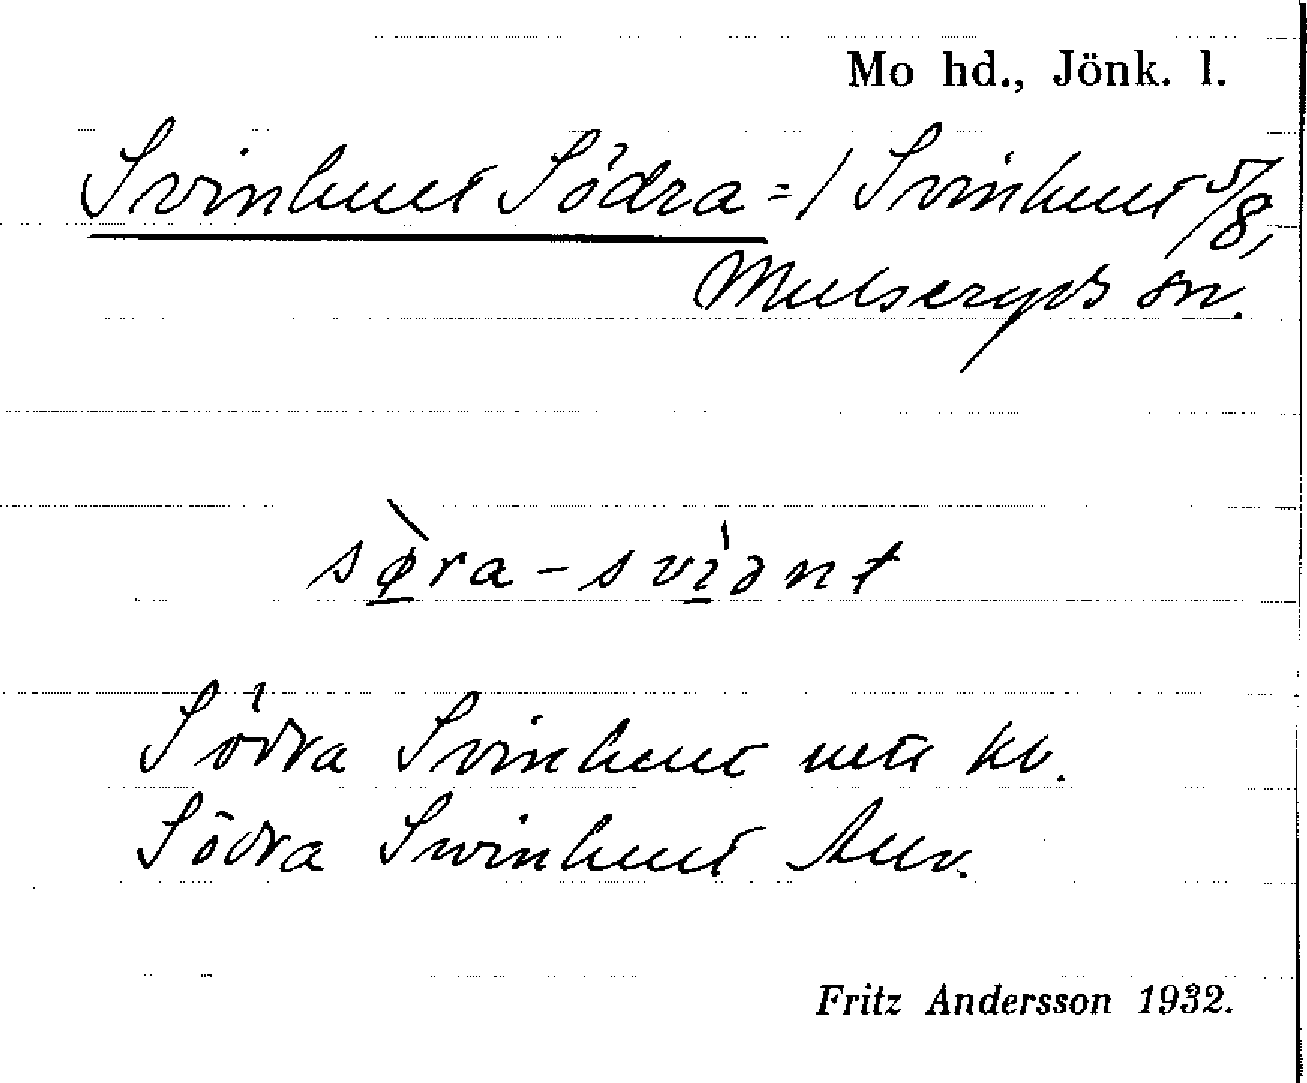 Mo hd., Jönk. l.
Svinhult Södra = / Svinhult 5/8,
Mulseryds sn.
sø̀ra-svìənt
Södra Svinhult
Södra Swinhult
Fritz Andersson 1932.